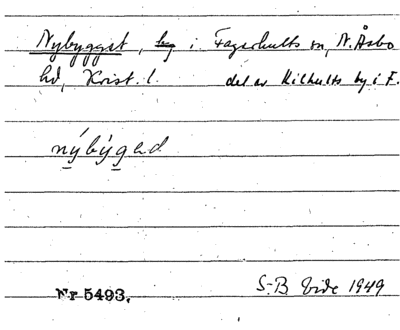 Nybygget, by i Fagerhults sn, N. Åsbo
hd, Krist. l. del av Kilhults by i F.
nýbýgəd
Nr 5493.
S-B. Vide 1949